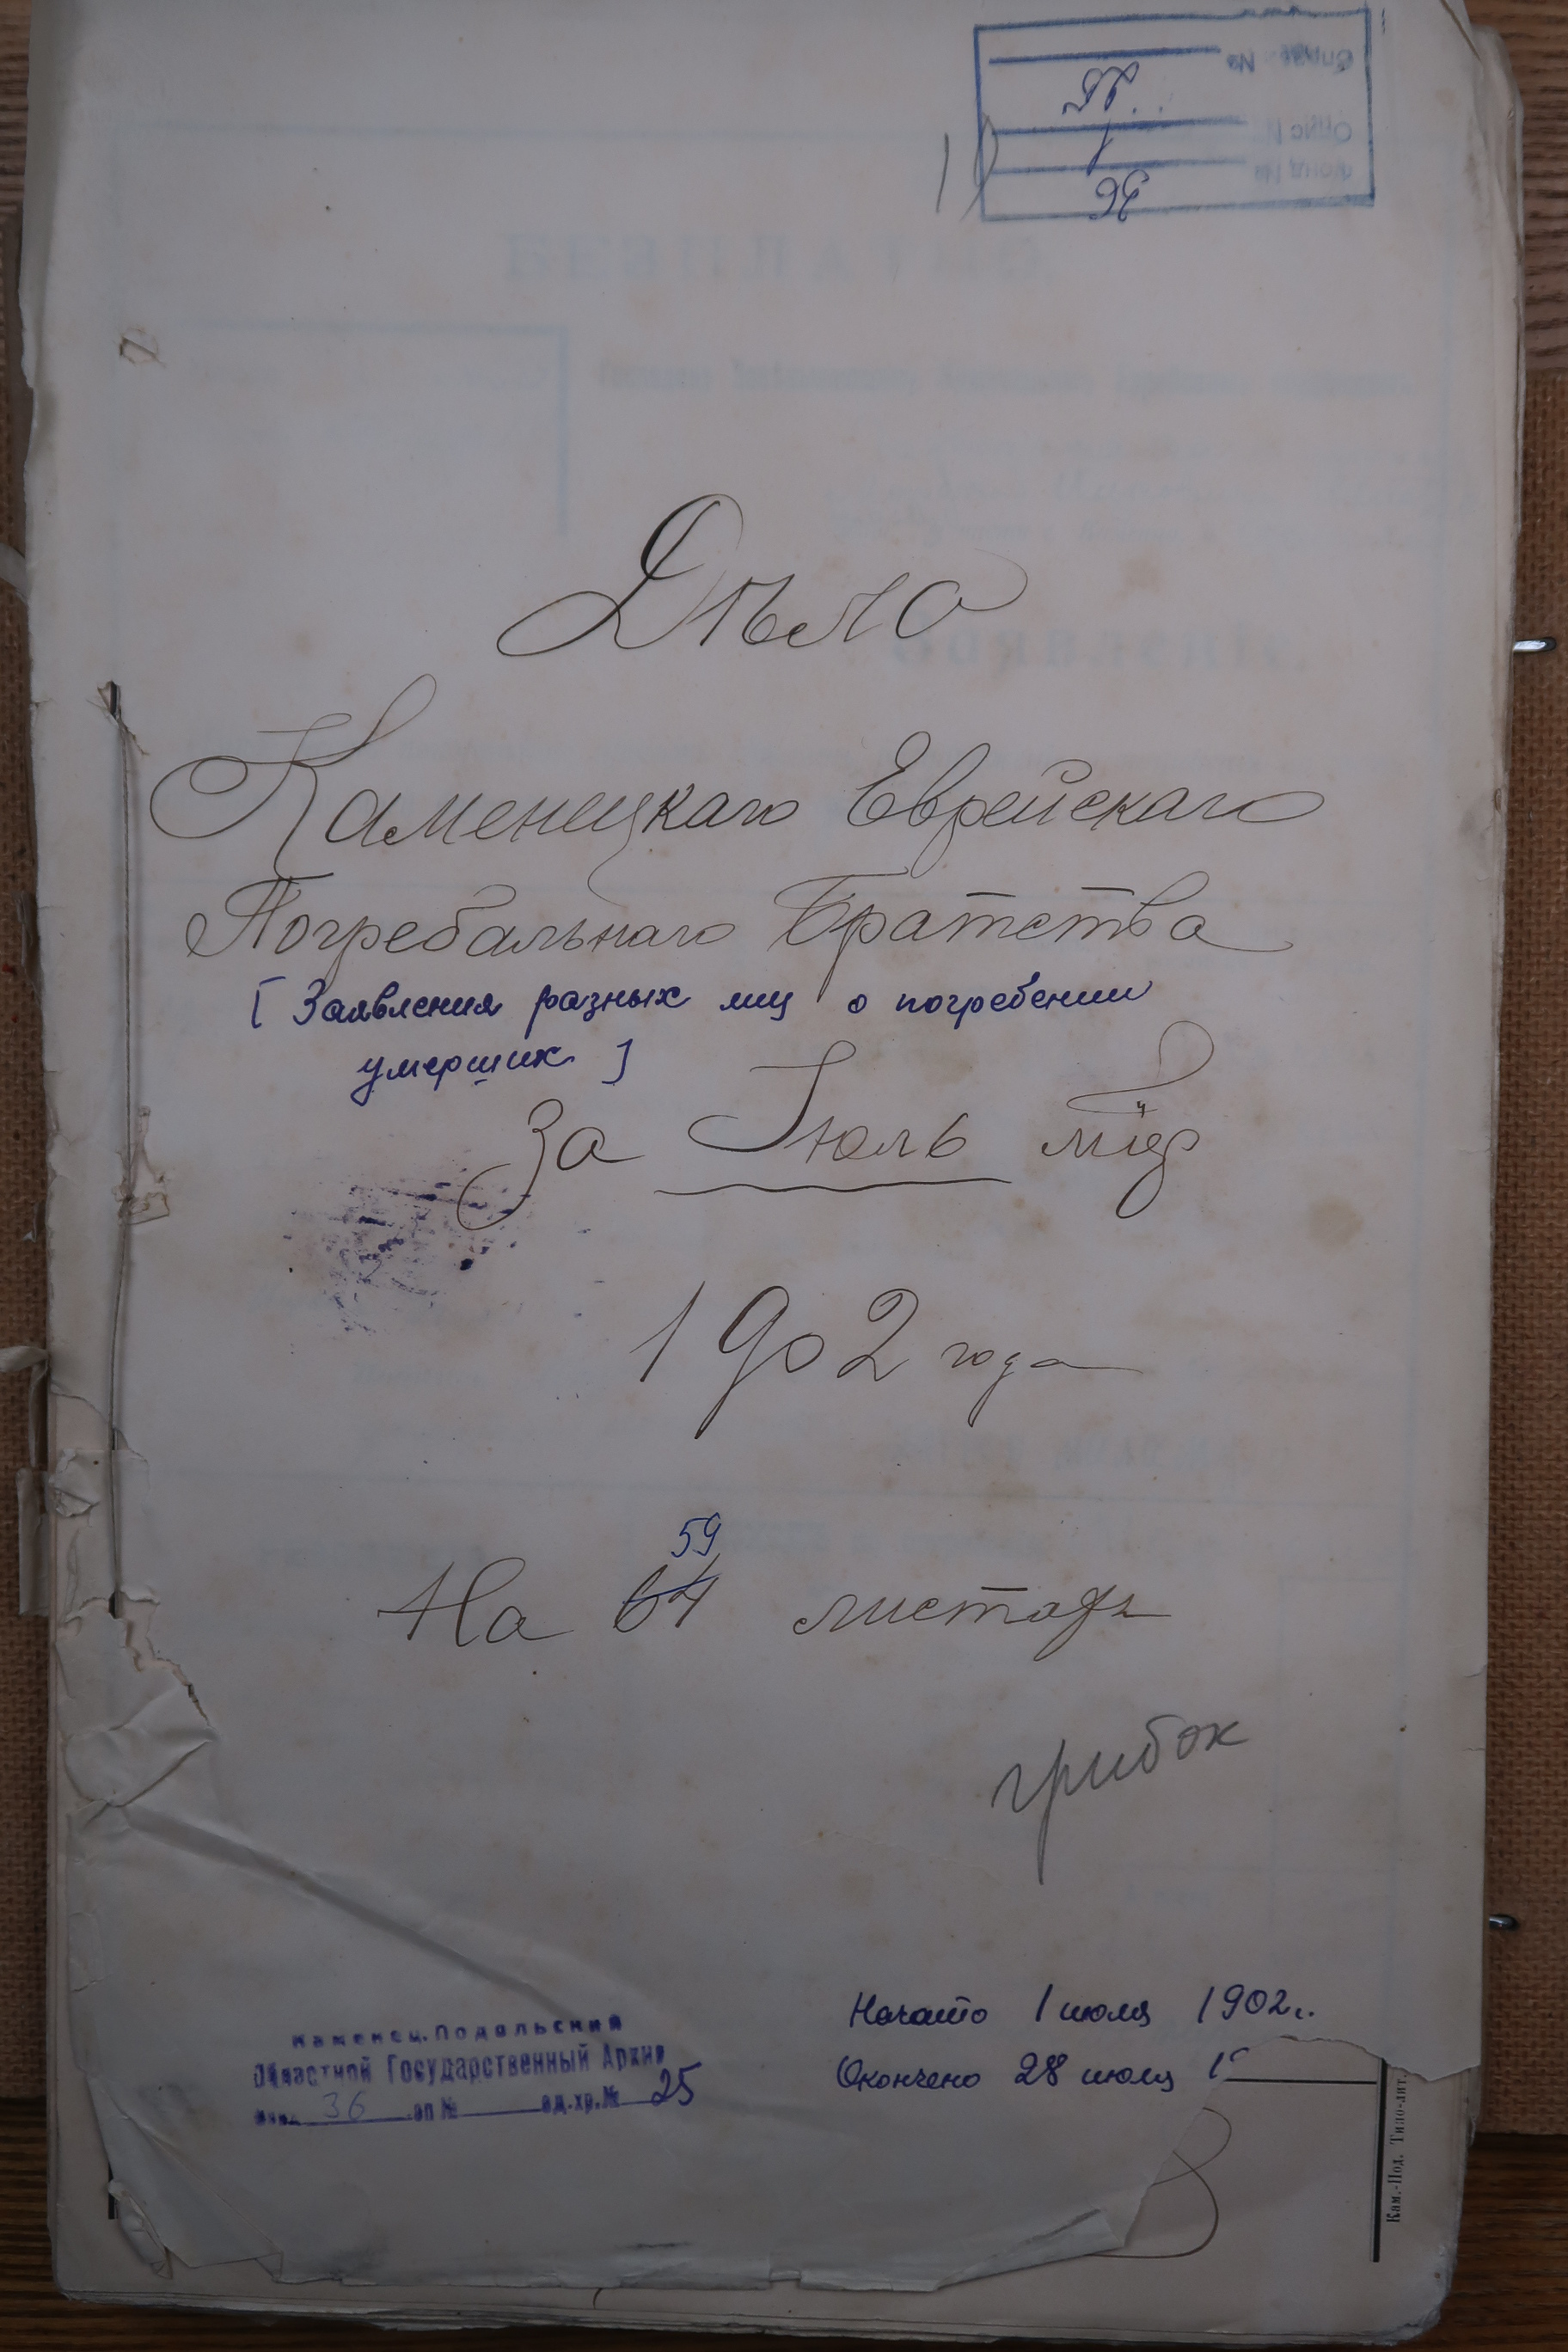 Справа №
Опис №
Фонд №
36
Дѣло
Каменецкаго Еврейскаго
Погребальнаго Братства
[ Заявления разных лиц о погребении
умерших ]
За Іюль м-ц
1902 года
59
На 64 листахъ
грибок
Начато 1 июля 1902 г.
Окончено 28 июля 1
Каменец-Подольский
Областной Государственный Архив
фонд 36 оп № ед.хр.№ 25
Кам.-Под. Типо-лит.